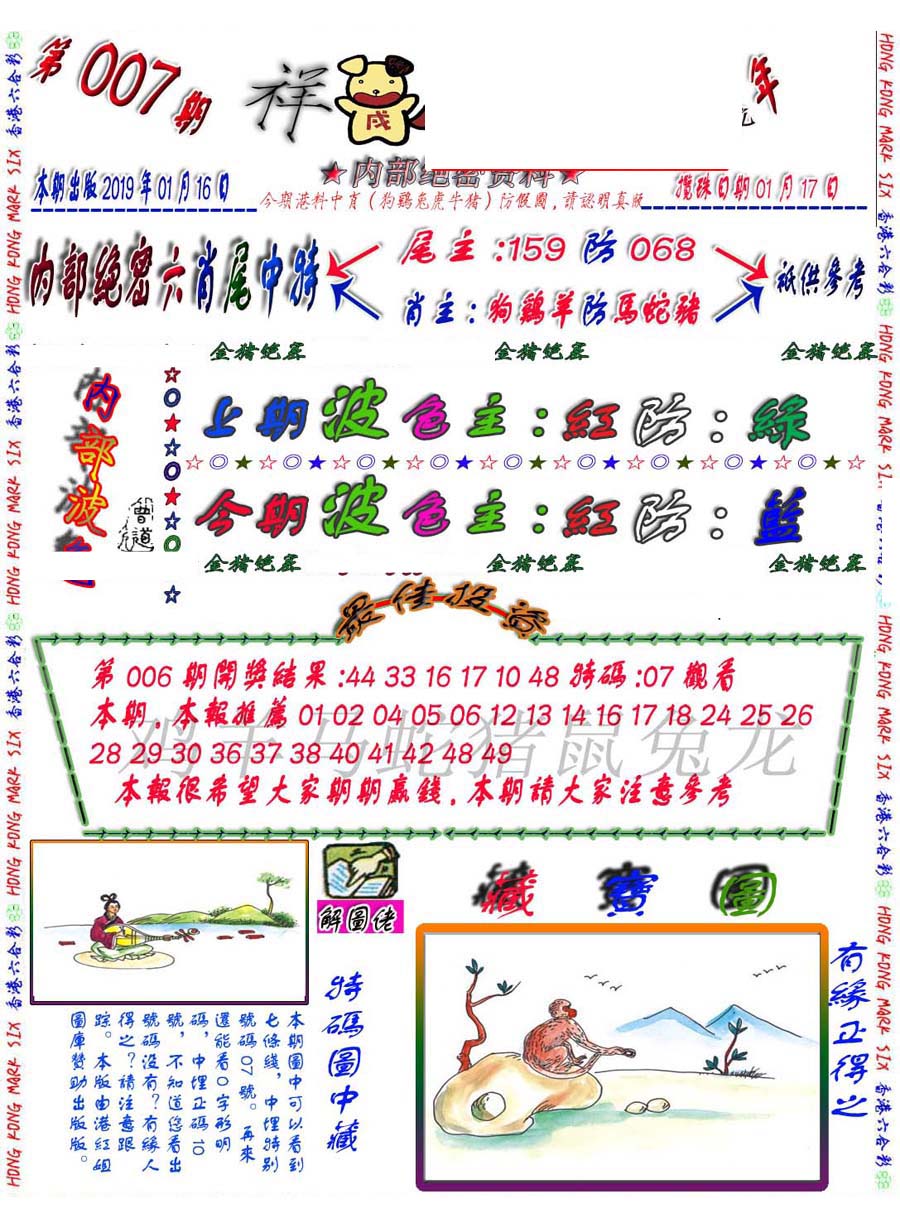 第007期
祥
戌
年
★内部绝密资料★
本期出版2019年01月16日
攪珠日期01月17日
今期港料中肖(狗鷄兔虎牛猪)防假圖,請認明真版
内部絶密六肖尾中特
尾主:159 防 068
肖主:狗鷄羊防馬蛇豬
衹供參考
金猪绝密 金猪绝密 金猪绝密
内部波
上期波色主:紅防:綠
☆◎★☆◎★☆◎★☆◎★☆◎★☆◎★☆◎★☆◎★☆
今期波色主:紅防:藍
曾道
金猪绝密 金猪绝密 金猪绝密
最佳投注
第 006 期開獎結果:44 33 16 17 10 48 特碼:07 觀看
本期.本報推薦 01 02 04 05 06 12 13 14 16 17 18 24 25 26
28 29 30 36 37 38 40 41 42 48 49
鸡羊马蛇猪鼠兔龙
本報很希望大家期期贏錢.本期請大家注意參考
解圖佬
藏寶圖
特碼圖中藏
有緣正得之
本期圖中可以看到
七條綫,中埋特别
號碼07號。再來
還能看0字形明
碼,中埋正碼10
號,不知道您看出
號碼没有?有緣人
得之?請注意跟
踪。本版由港紅姐
圖庫贊助出版。
HONG KONG MARK SIX 香港六合彩
HONG KONG MARK SIX 香港六合彩
HONG KONG MARK SIX 香港六合彩
HONG KONG MARK SIX 香港六合彩
HONG KONG MARK SIX 香港六合彩
HONG KONG MARK SIX 香港六合彩